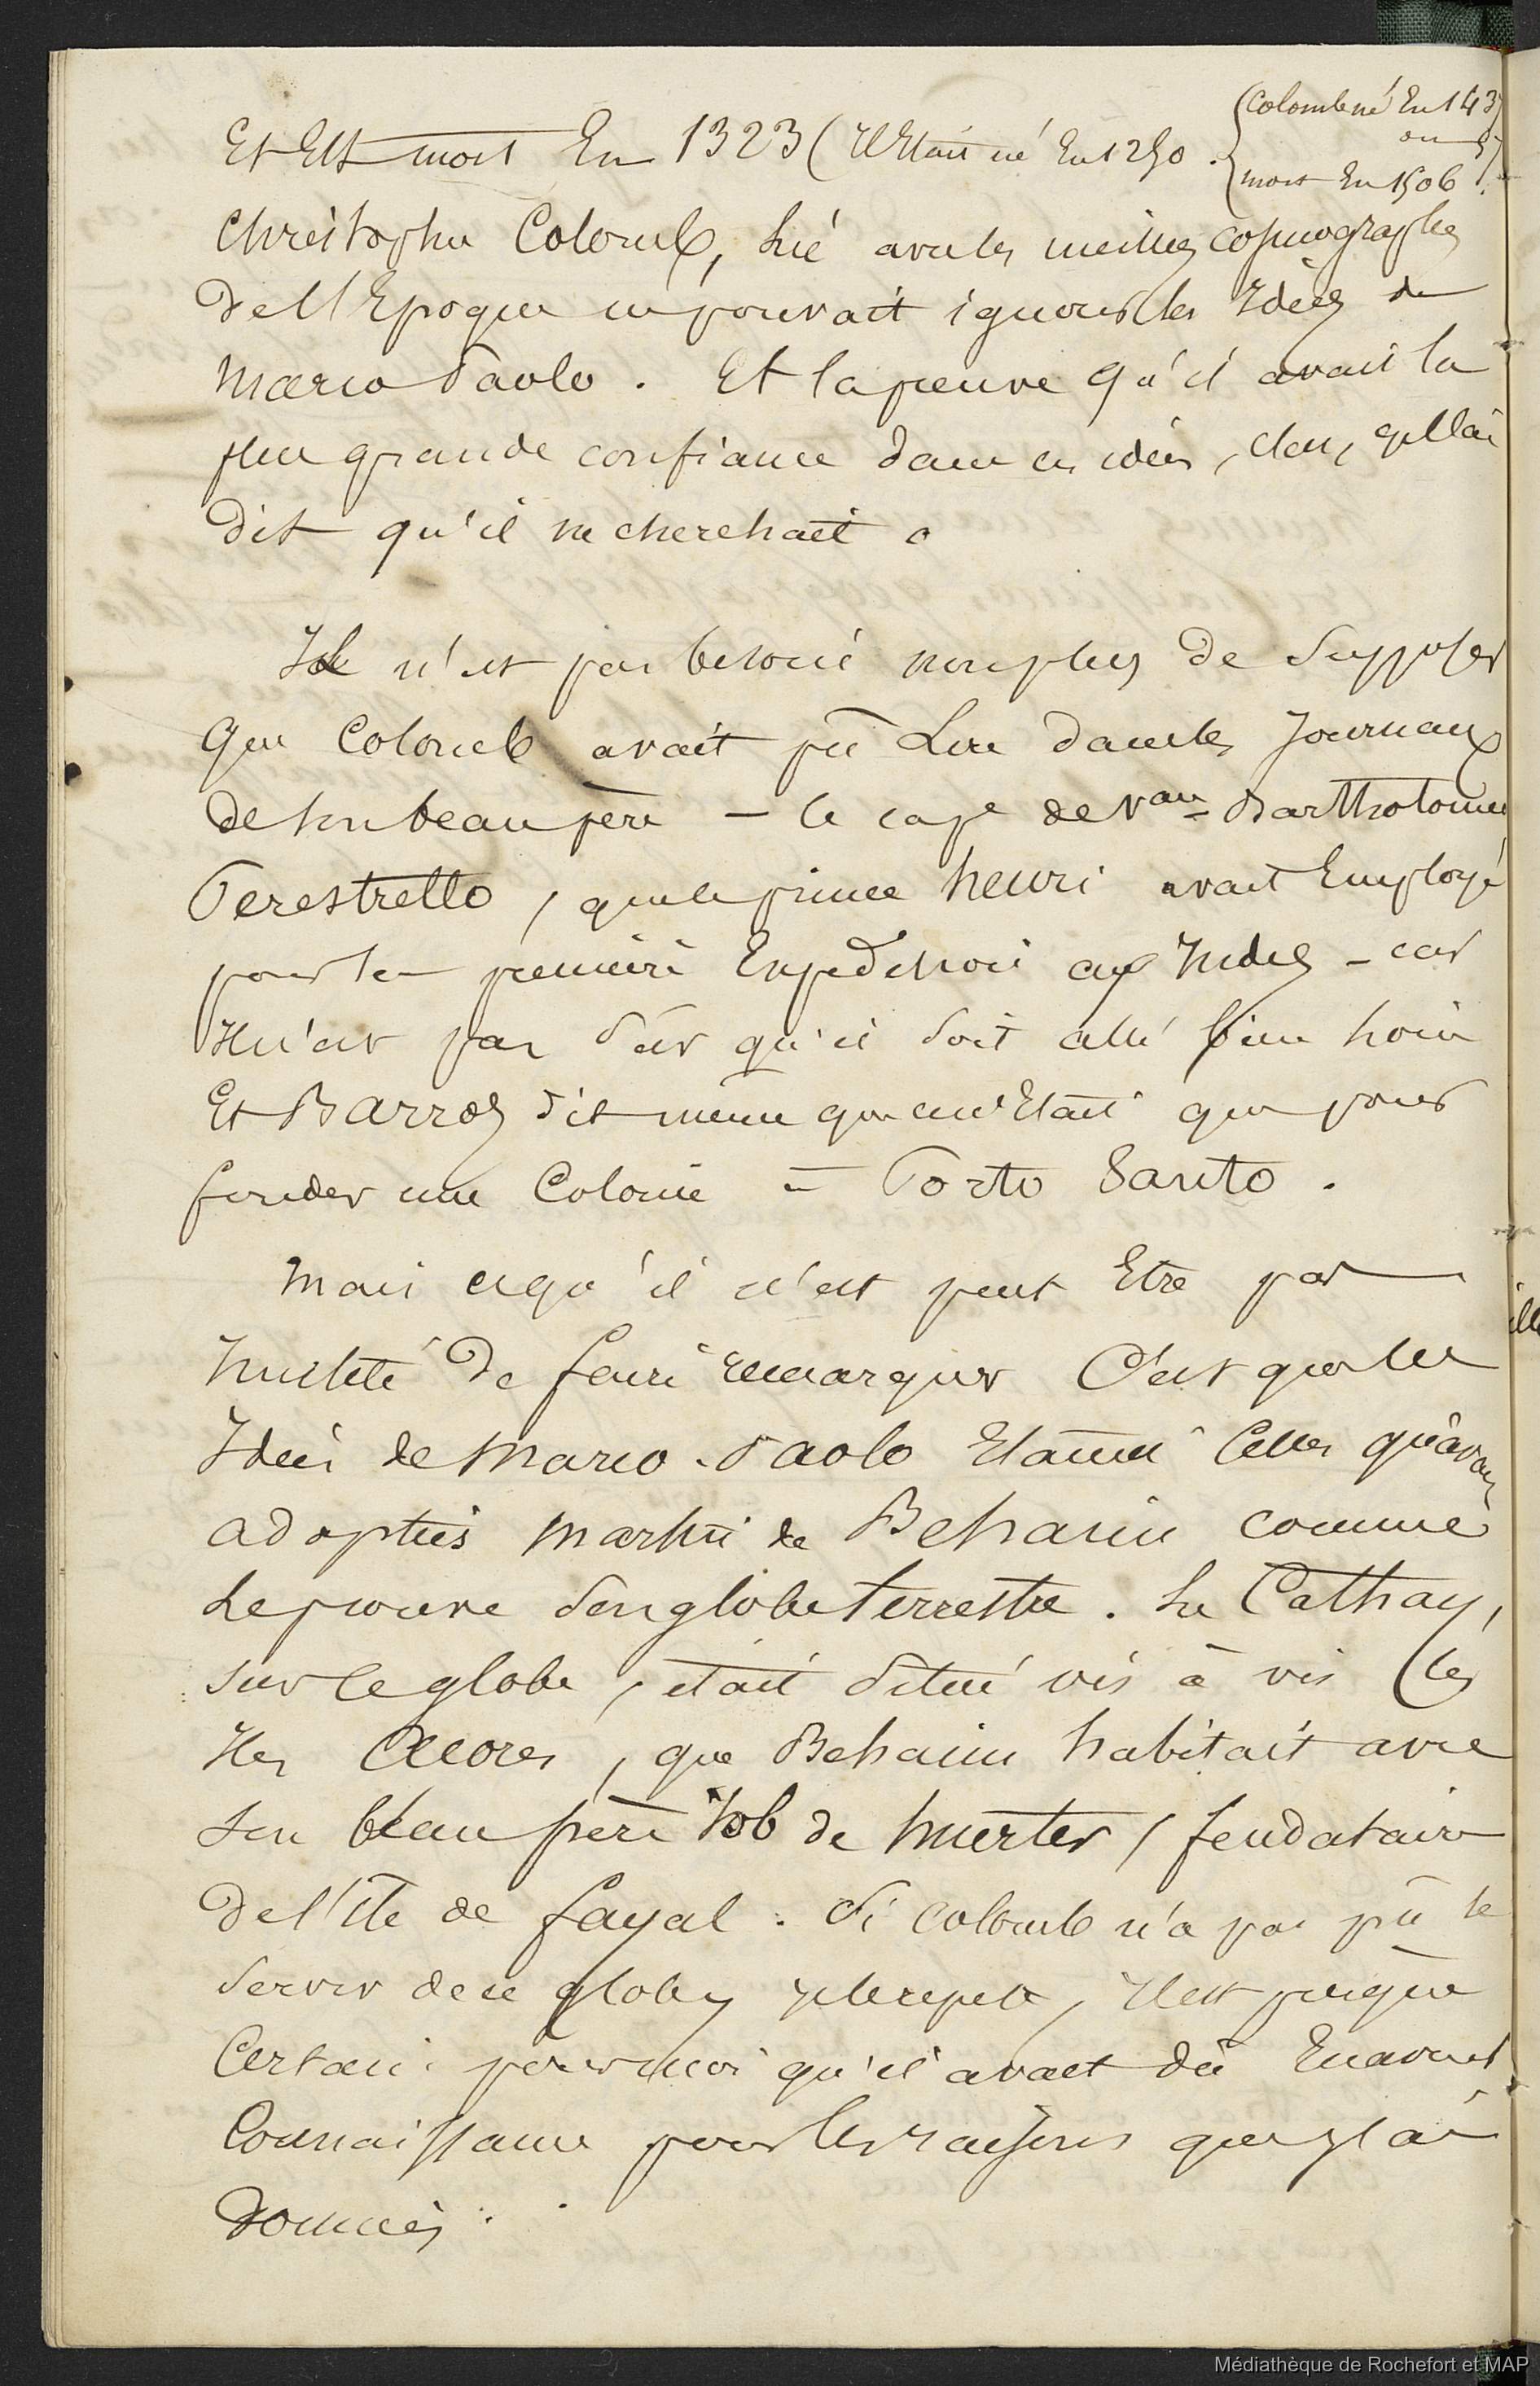 Et Est mort En 1323 (Il Etait né En 1250.
{Colomb né En 143
ou
{mort En 1506
Christophe Colomb, Lié avec les meilleurs cosmographes
de l'Epoque ne pouvait ignorer les Idées de
Marco Paolo. Et la preuve qu'il avait la
plus grande confiance dans ces idées,
dit qu'il ne cherchait
Il n'est pas besoin non plus de Supposer
que Colomb avait pû Lire dans les Journaux
de son beau père — le cap de Vau = Bartholomeu
Perestrello, que le prince henri avait Employé
pour la première Expedition aux Indes — car
Il n'est pas Sûr qu'il Soit allé bien Loin
Et Barros dit même que ce n'Etait que pour
fonder une Colonie = Porto Santo.
Mais ce qu'il n'est peut Etre pas
Inutile de faire remarquer C'est que les
Idées de Marco Paolo Etaient Celles qu'avait
adoptées Martin de Behaim comme
Le prouve Son globe terrestre. Le Cathay,
sur le globe, était Situé vis à vis les
Iles Acores, que Behaim habitait avec
Son beau père Job de huerter, feudataire
de l'île de fayal. Si Colomb n'a pas pû se
Servir de ce globe, je le repete, Il est presque
Certain pour moi qu'il avait dû En avoir
Connaissance pour les raisons que j'ai
Données.
Médiathèque de Rochefort et MAP